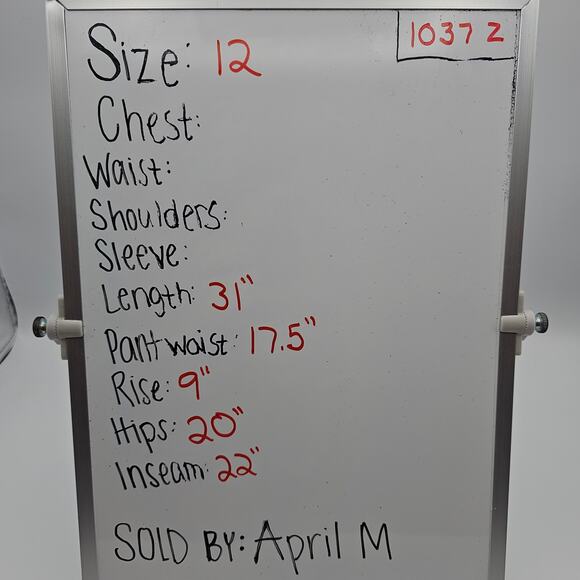 1037 Z
Size: 12
Chest:
Waist:
Shoulders:
Sleeve:
Length: 31"
Pant waist: 17.5"
Rise: 9"
Hips: 20"
Inseam: 22"
SOLD BY: April M